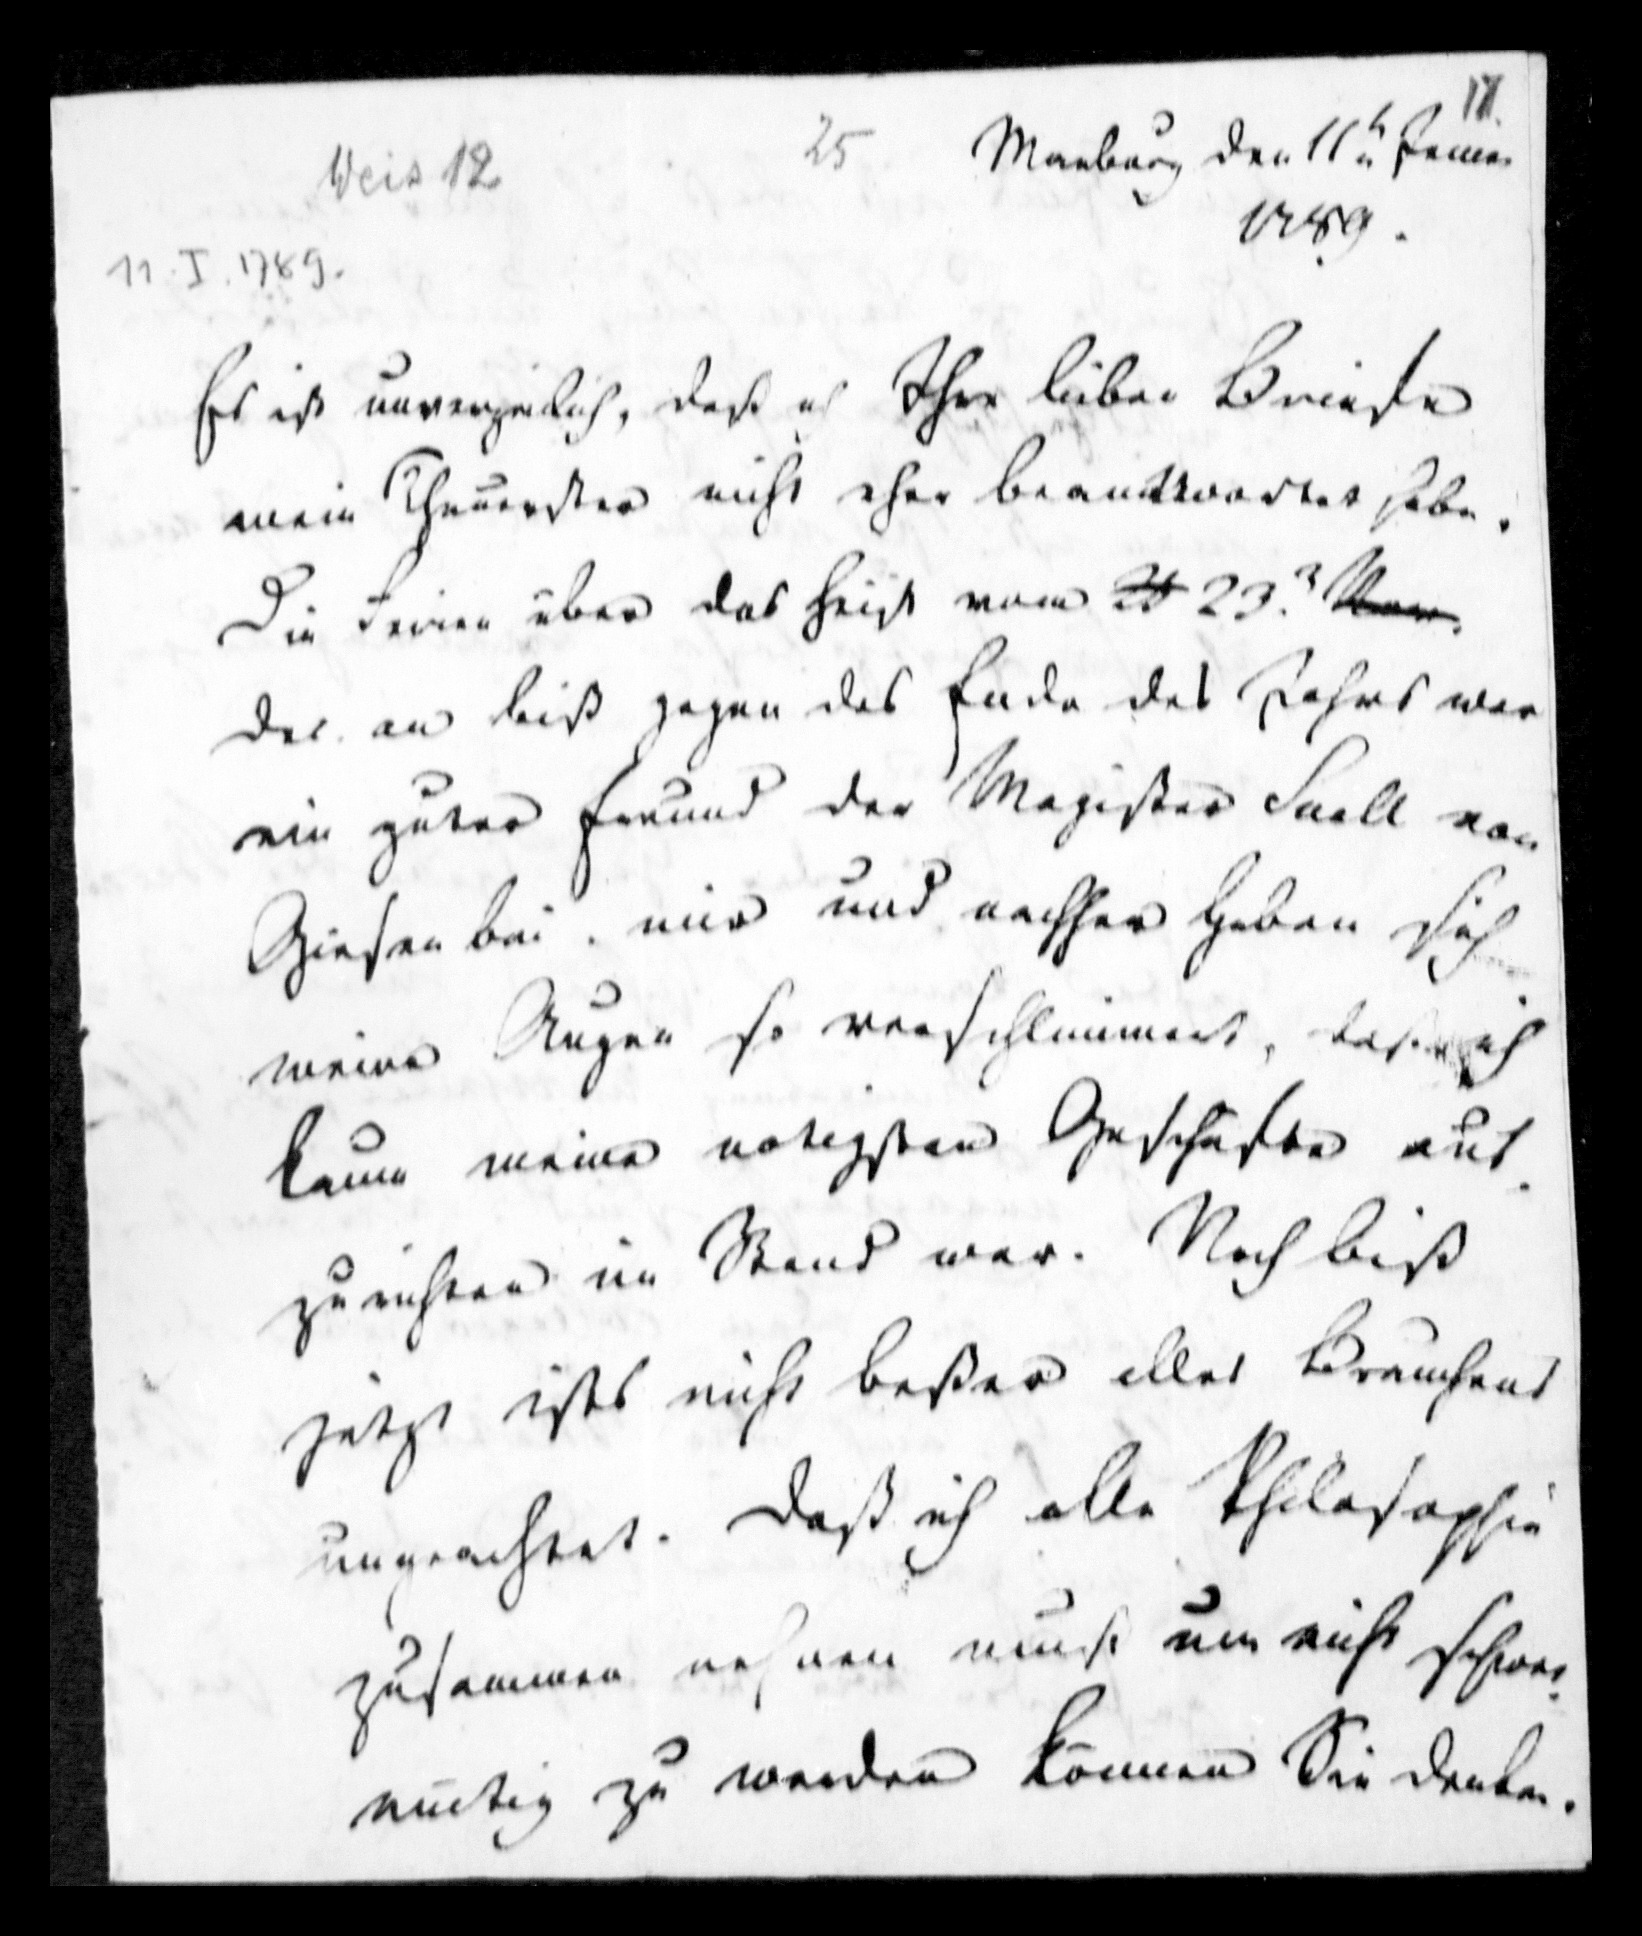 17.
Weis 12
25
Marburg den 11n Jenner
1789.
11. I. 1789.
Es ist unverzeilich, dast ich Ihre lieben Briefe
mein Theuerster nicht eher beantwortet habe.
Die Ferien über das heist vom 23. Nov.
Dec. an biß gegen das Ende des Jahrs war
ein guter Freund der Magister Snell von
Giesen bei mir und nachher haben sich
meine Augen so verschlimmert, daß ich
kaum meine notigsten Geschäfte aus-
zurichten im Stand war. Noch biß
jetzt ists nicht beßer alles Brauchens
ungeachtet. Daß ich alle Philosophie
zusammen nehmen must um nicht schwer-
mütig zu werden können Sie denken.